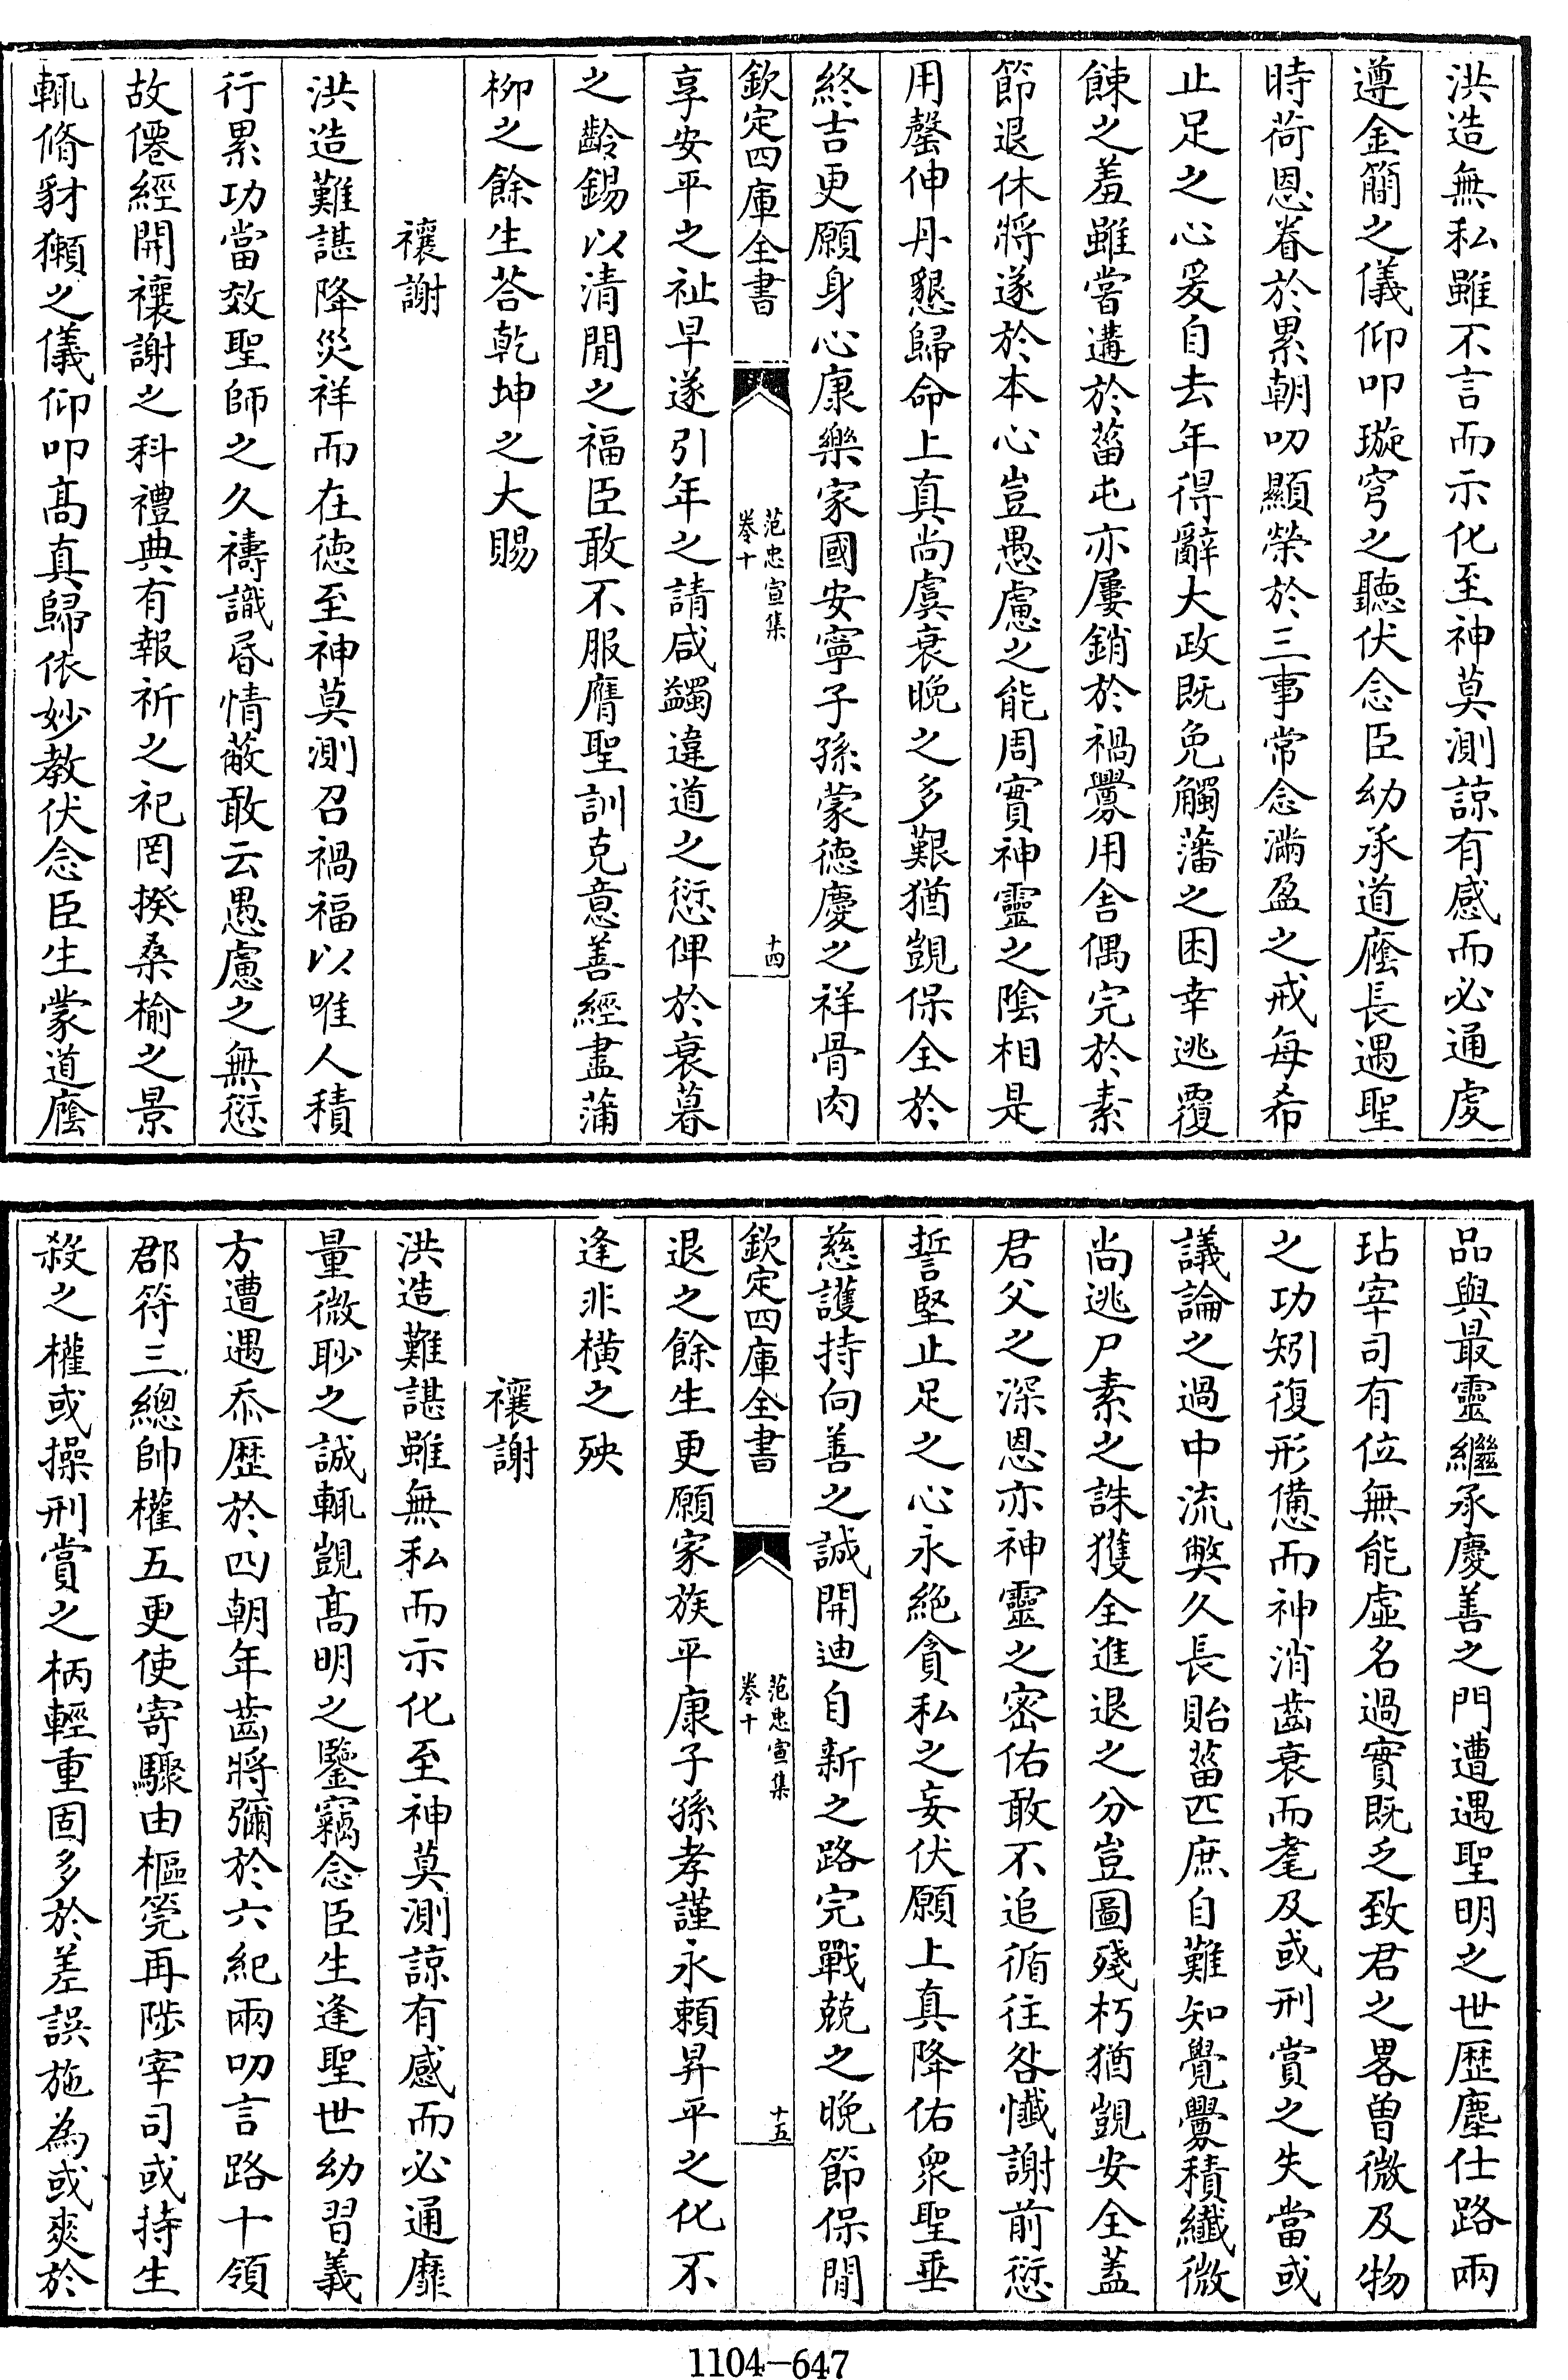 洪造無私雖不言而示化至神莫測諒有感而必通虔
遵金簡之儀仰叩璇穹之聽伏念臣幼承道廕長遇聖
時荷恩眷於累朝叨顯榮於三事常念滿盈之戒每希
止足之心爰自去年得辭大政既免觸藩之困幸逃覆
餗之羞雖嘗遘於菑屯亦屢銷於禍釁用舍偶完於素
節退休將遂於本心豈愚慮之能周實神靈之陰相是
用罄伸丹懇歸命上真尚虞衰晚之多艱猶覬保全於
終吉更願身心康樂家國安寧子孫蒙德慶之祥骨肉
欽定四庫全書
范忠宣集
卷十
十四
享安平之祉早遂引年之請咸蠲違道之愆俾於衰暮
之齡錫以清閒之福臣敢不服膺聖訓克意善經盡蒲
柳之餘生荅乾坤之大賜
禳謝
洪造難諶降災祥而在德至神莫測召禍福以唯人積
行累功當效聖師之久禱識昏情蔽敢云愚慮之無愆
故僊經開禳謝之科禮典有報祈之祀罔揆桑榆之景
輒脩豺獺之儀仰叩高真歸依妙教伏念臣生蒙道廕
品與最靈繼承慶善之門遭遇聖明之世歷塵仕路兩
玷宰司有位無能虛名過實既乏致君之畧曾微及物
之功矧復形憊而神消齒衰而耄及或刑賞之失當或
議論之過中流弊久長貽菑匹庶自難知覺釁積纖微
尚逃尸素之誅獲全進退之分豈圖殘朽猶覬安全蓋
君父之深恩亦神靈之密佑敢不追循往咎懺謝前愆
誓堅止足之心永絶貪私之妄伏願上真降佑衆聖垂
慈護持向善之誠開迪自新之路完戰兢之晚節保閒
欽定四庫全書
范忠宣集
卷十
十五
退之餘生更願家族平康子孫孝謹永賴昇平之化不
逢非橫之殃
禳謝
洪造難諶雖無私而示化至神莫測諒有感而必通靡
量微眇之誠輒覬高明之鑒竊念臣生逢聖世幼習義
方遭遇忝歷於四朝年齒將彌於六紀兩叨言路十領
郡符三總帥權五更使寄驟由樞筦再陟宰司或持生
殺之權或操刑賞之柄輕重固多於差誤施為或爽於
1104-647